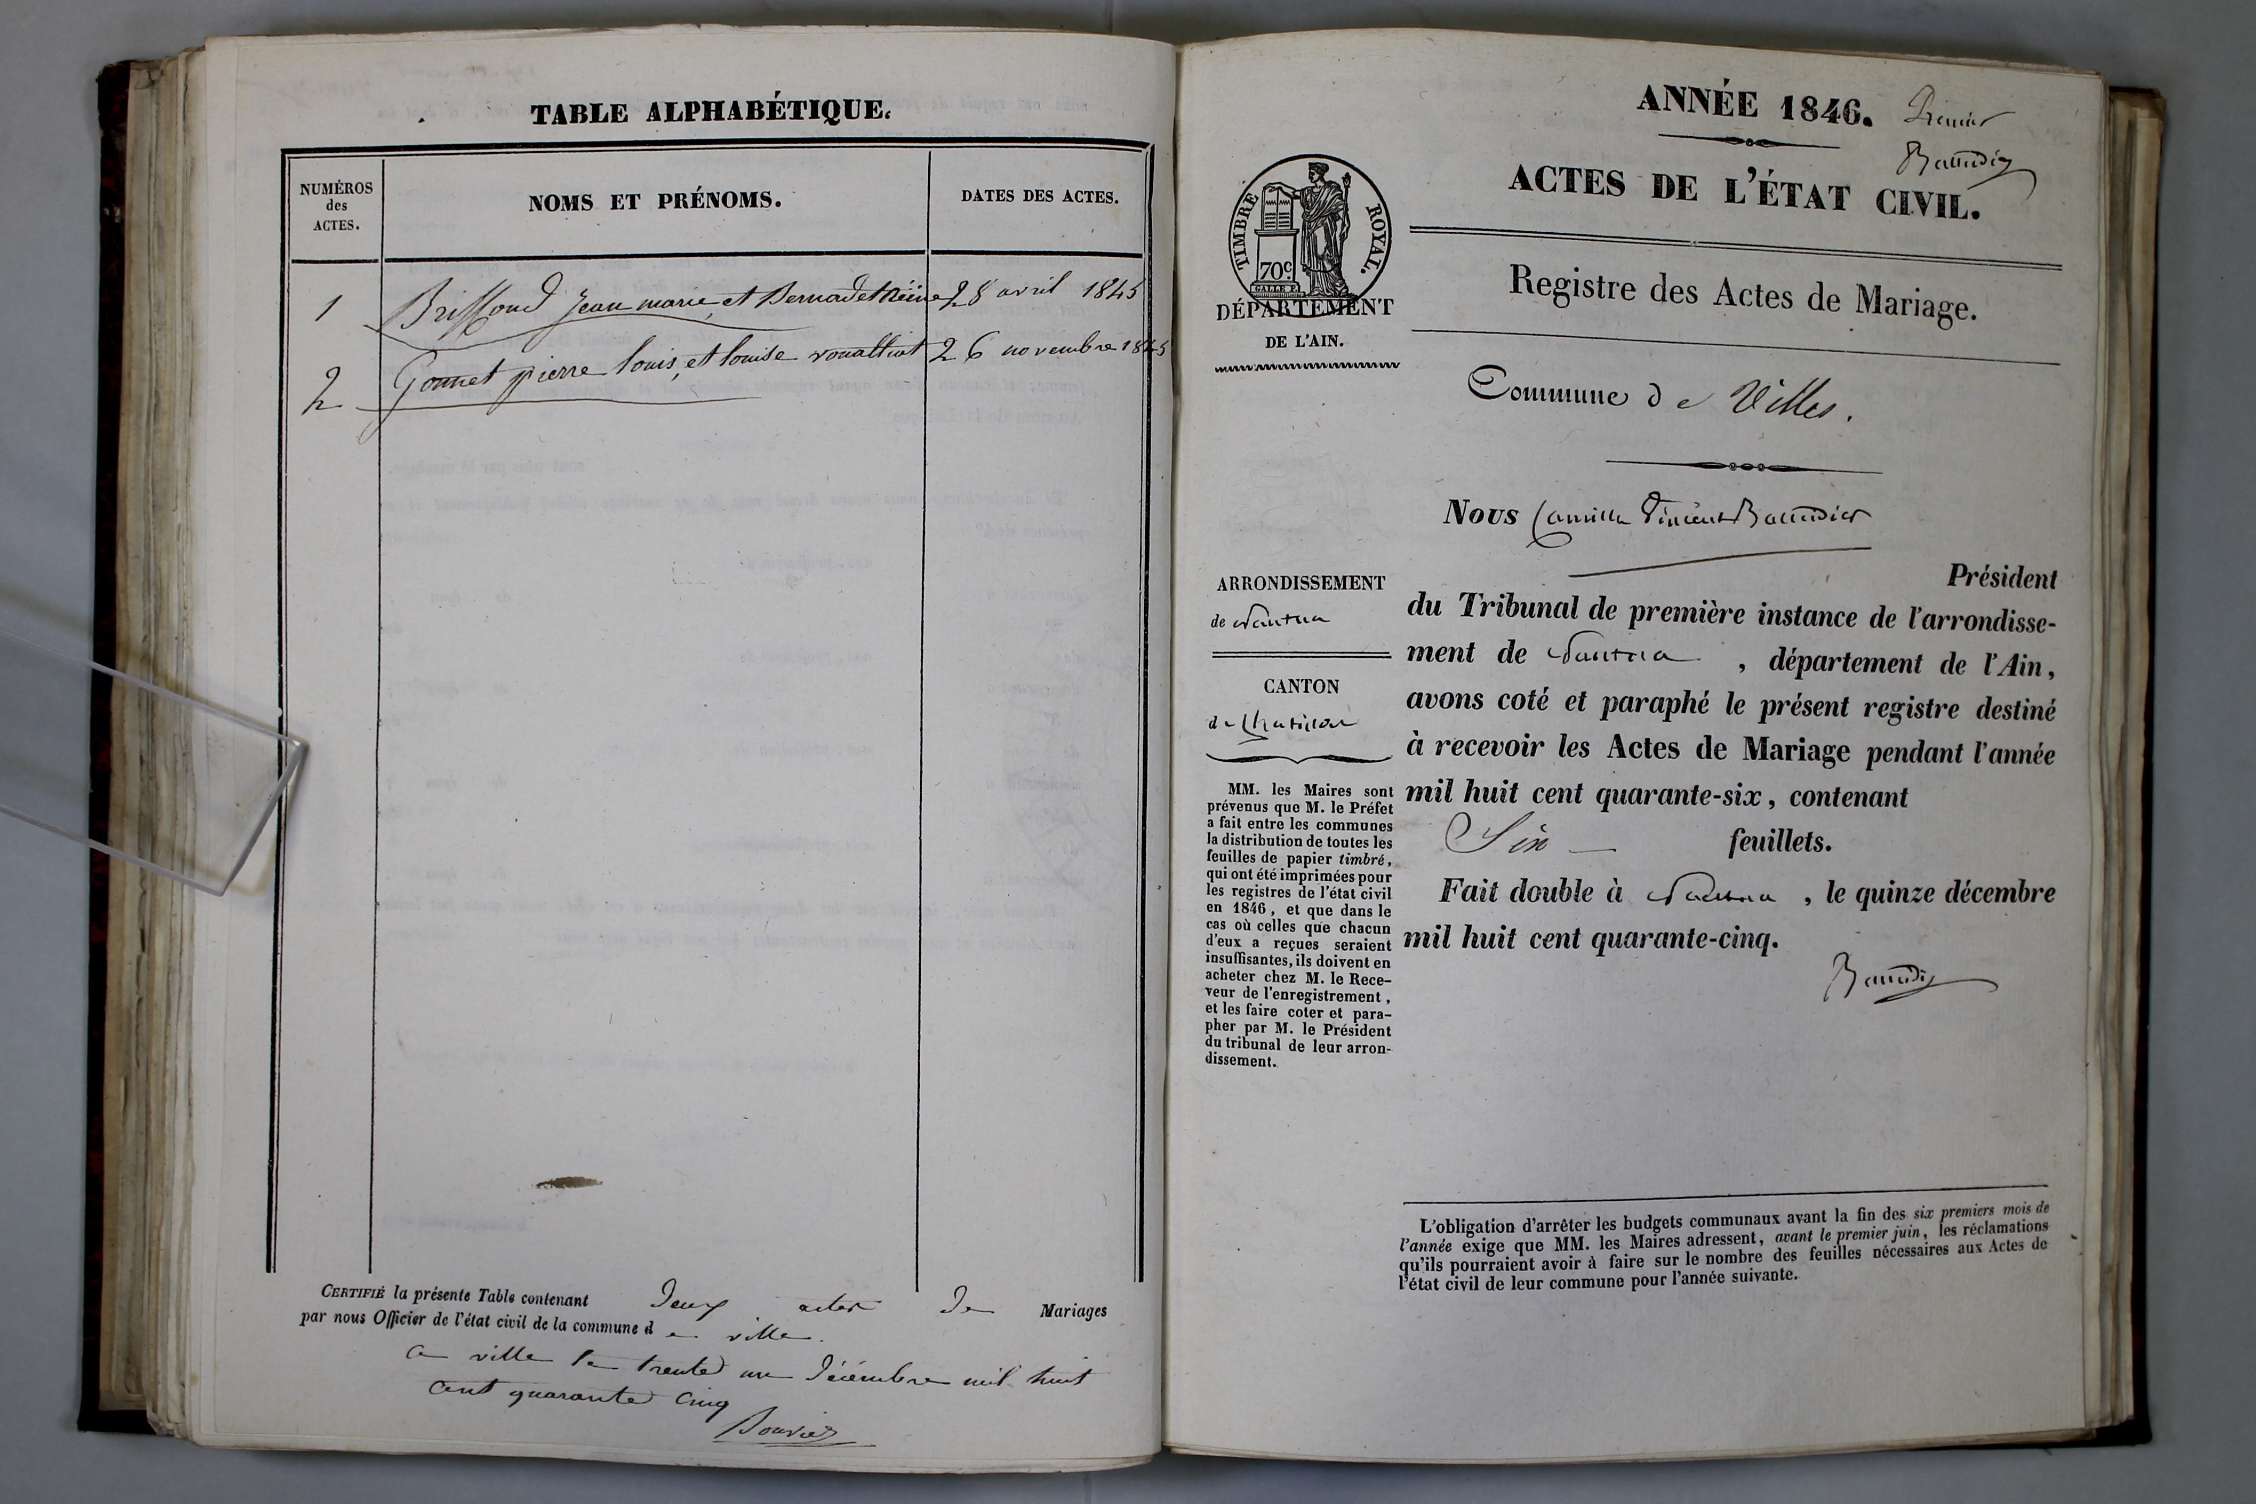 TABLE ALPHABÉTIQUE.
NUMÉROS
des
ACTES.
NOMS ET PRÉNOMS.
DATES DES ACTES.
1 Briffond Jean marie, et Bernadet Reine 28 avril 1845
2 Gonnet pierre louis, et louise 26 novembre 1845
CERTIFIÉ la présente Table contenant Deux actes De Mariages
par nous Officier de l'état civil de la commune d e ville.
a ville le trente un Décembre mil huit
cent quarante cinq
Bouvier
ANNÉE 1846. Premier
Baudier
ACTES DE L'ÉTAT CIVIL.
TIMBRE ROYAL.
70c
DÉPARTEMENT
DE L'AIN.
Registre des Actes de Mariage.
Commune d e Villes.
Nous Camille Vincent Baudier
Président
du Tribunal de première instance de l'arrondisse-
ment de Nantua, département de l'Ain,
avons coté et paraphé le présent registre destiné
à recevoir les Actes de Mariage pendant l'année
mil huit cent quarante-six, contenant
Six feuillets.
Fait double à Nantua, le quinze décembre
mil huit cent quarante-cinq.
Baudier
ARRONDISSEMENT
de Nantua
CANTON
de Chatillon
MM. les Maires sont
prévenus que M. le Préfet
a fait entre les communes
la distribution de toutes les
feuilles de papier timbré,
qui ont été imprimées pour
les registres de l'état civil
en 1846, et que dans le
cas où celles que chacun
d'eux a reçues seraient
insuffisantes, ils doivent en
acheter chez M. le Rece-
veur de l'enregistrement,
et les faire coter et para-
pher par M. le Président
du tribunal de leur arron-
dissement.
L'obligation d'arrêter les budgets communaux avant la fin des six premiers mois de
l'année exige que MM. les Maires adressent, avant le premier juin, les réclamations
qu'ils pourraient avoir à faire sur le nombre des feuilles nécessaires aux Actes de
l'état civil de leur commune pour l'année suivante.